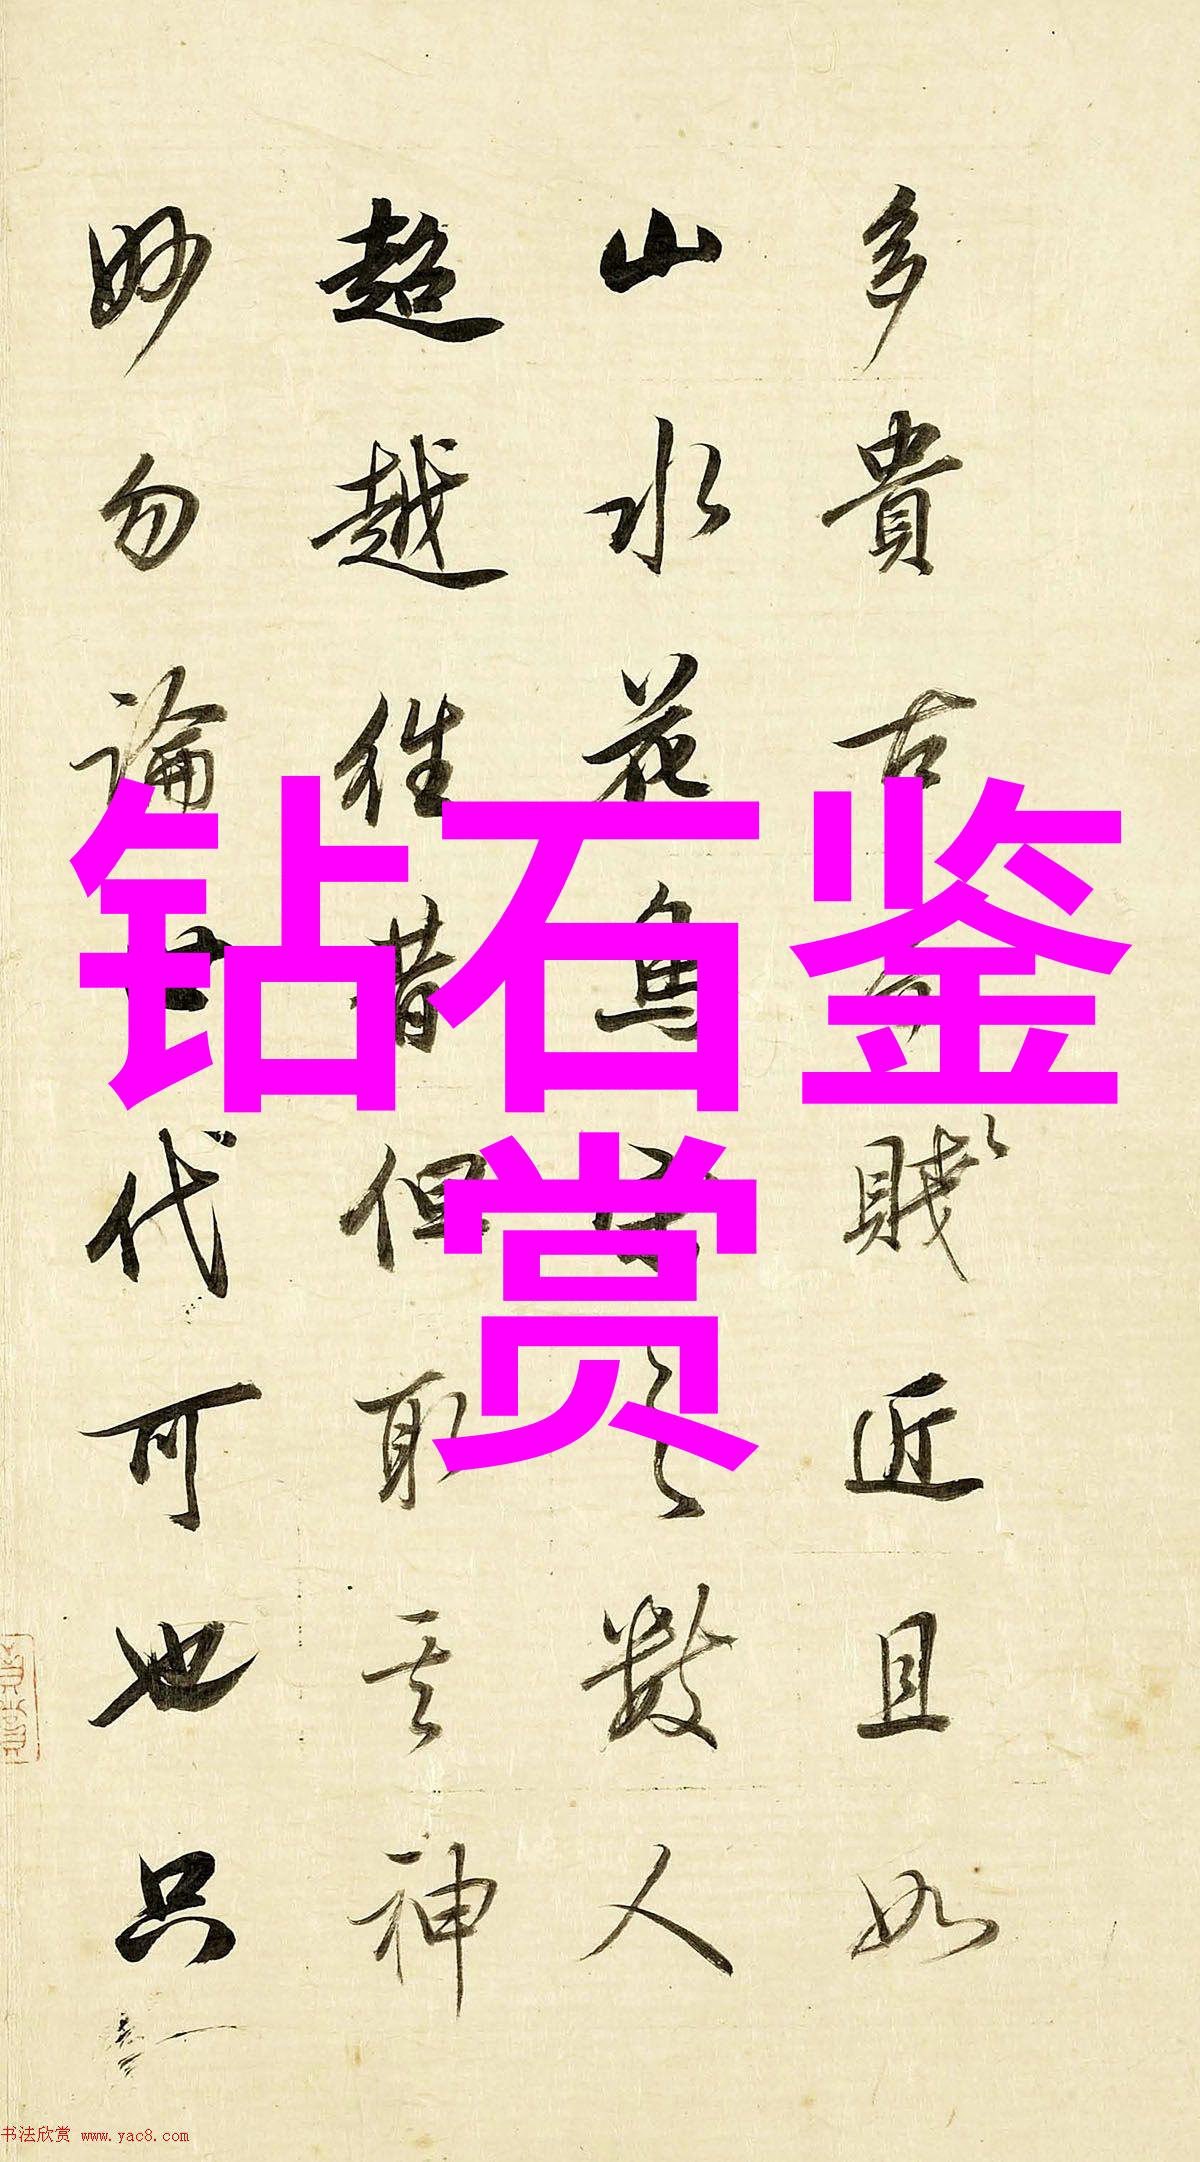 多貴古賤近且如
山水花鳥之數人
超越往昔但取其神
妙勿論代可也只
钻石鉴
赏
书法欣赏 www.yac8.com